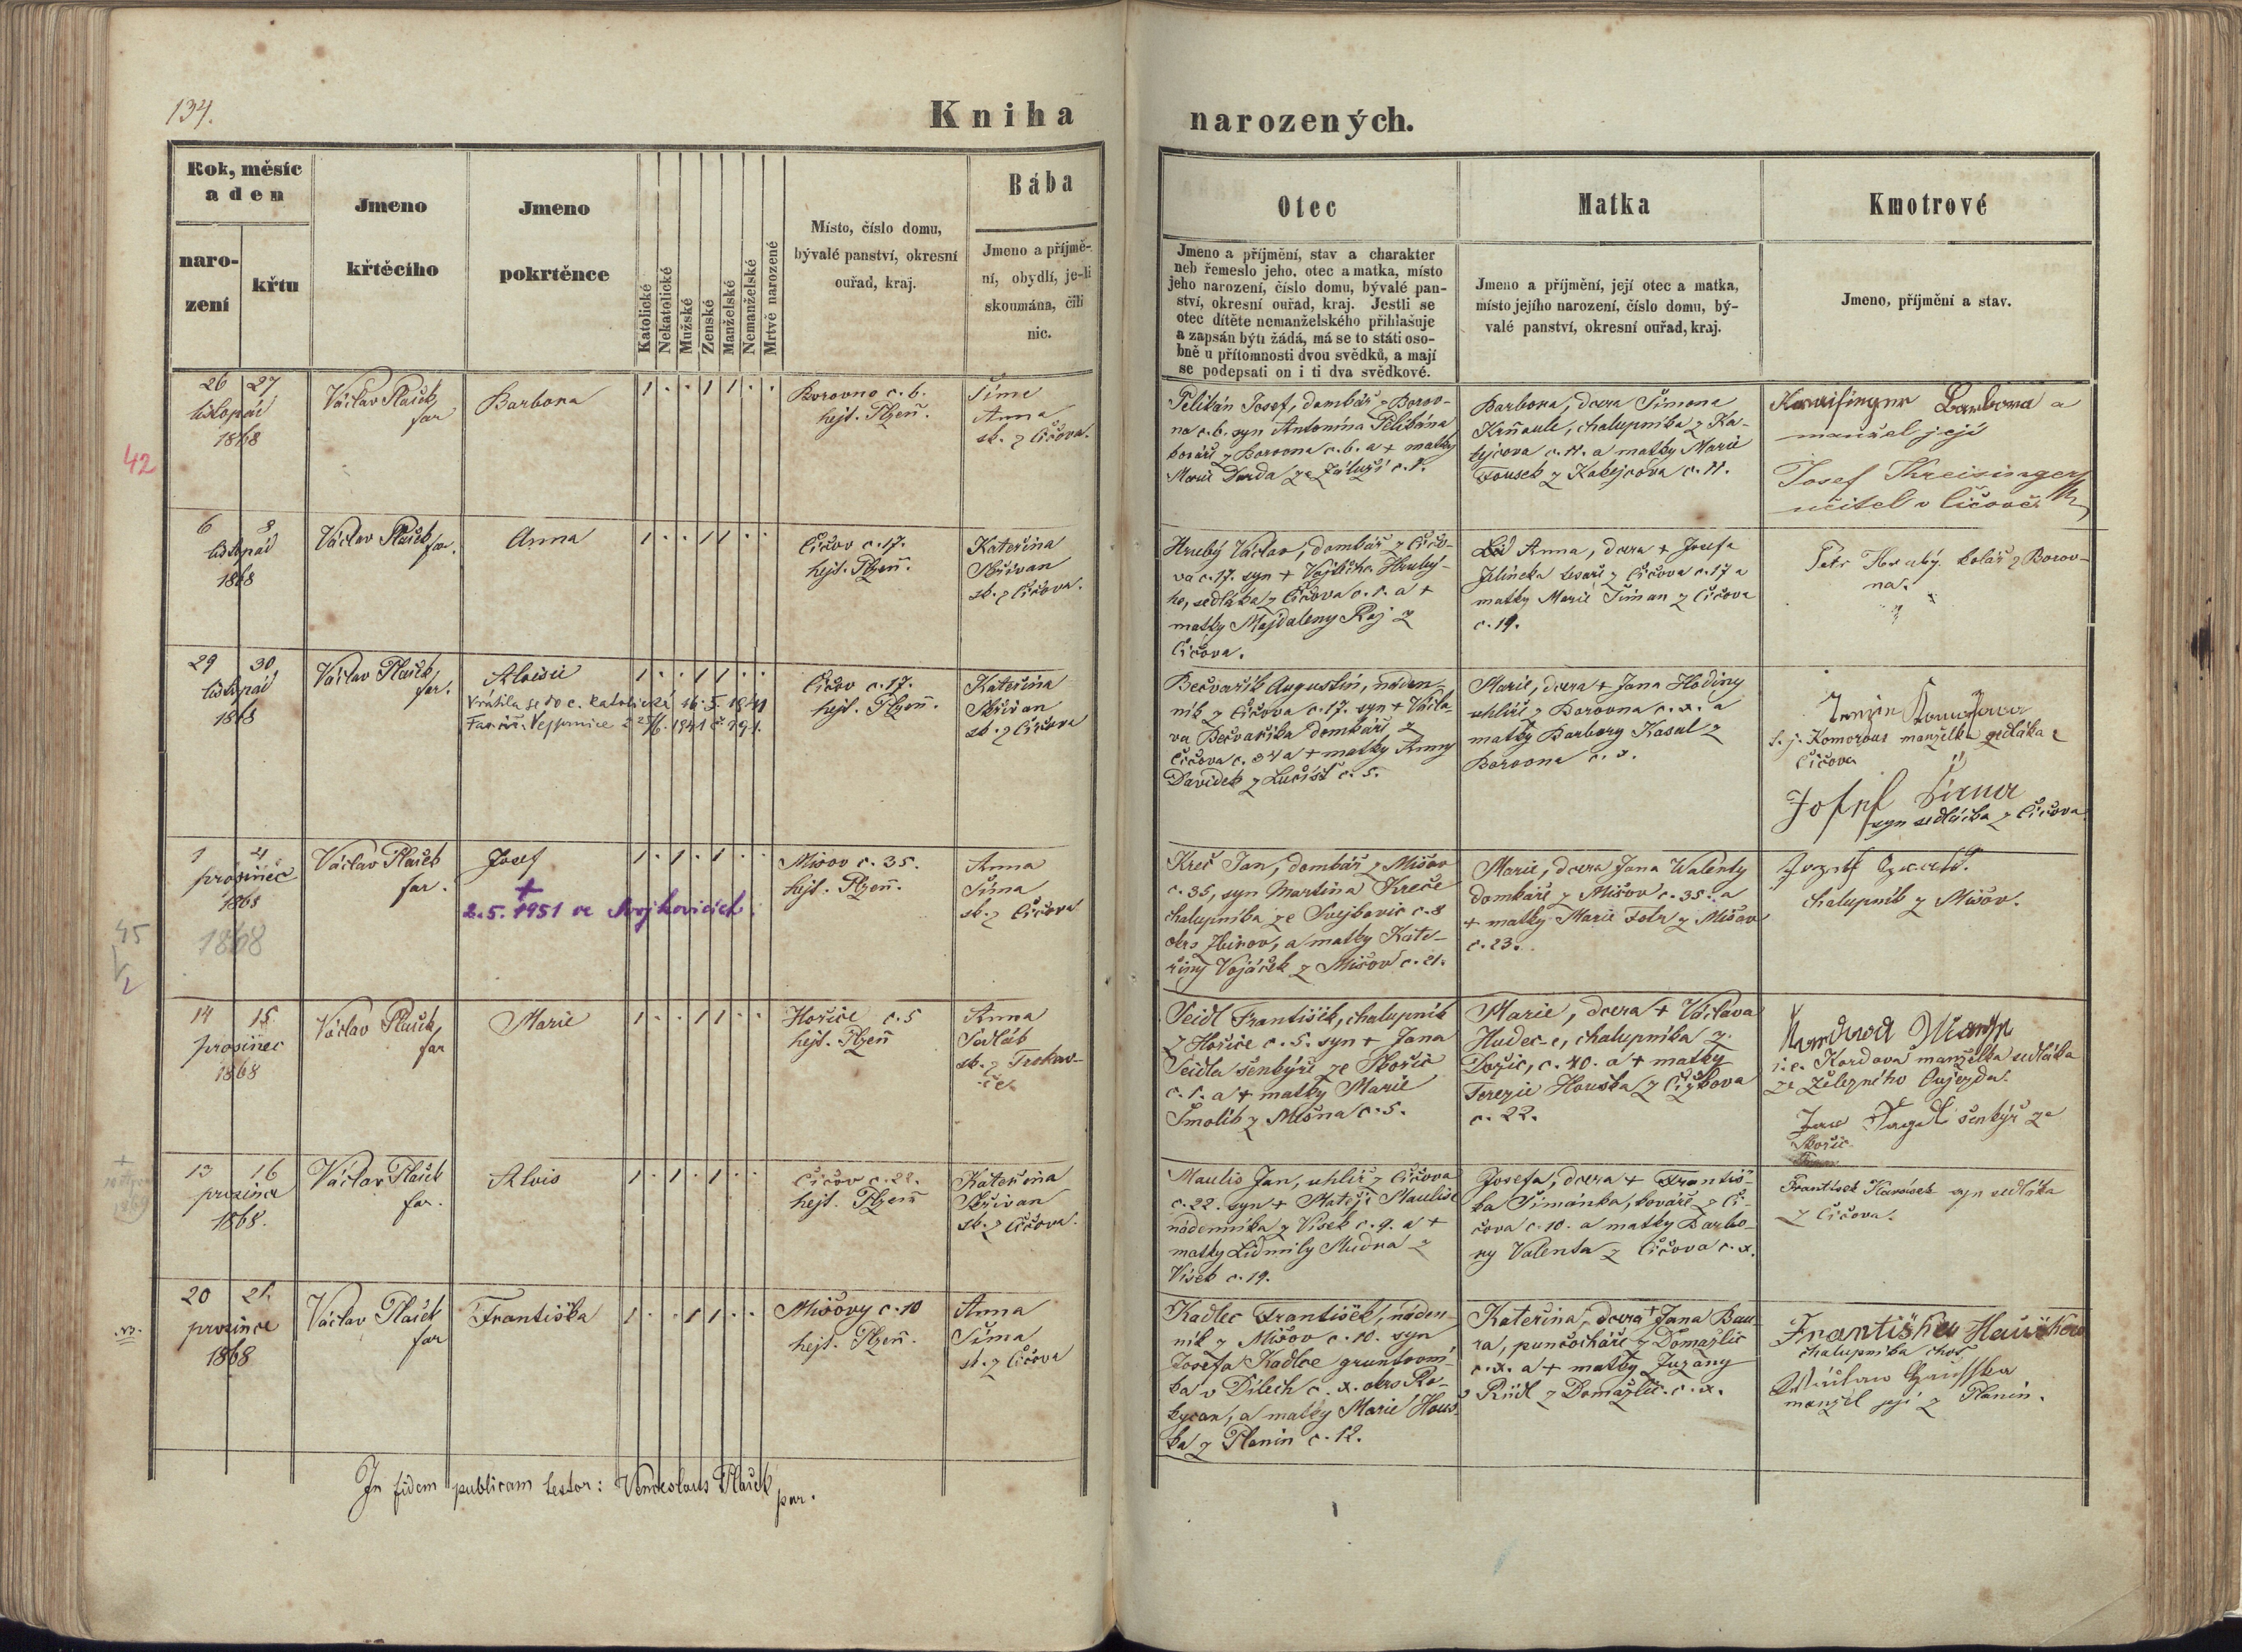 134.
Kniha
narozených.
Rok, měsíc
a den
naro-
zení
křtu
Jmeno
křtěcího
Jmeno
pokrtěnce
Katolické
Nekatolické
Mužské
Zenské
Manželské
Nemanželské
Mrtvě narozené
Místo, číslo domu,
bývalé panství, okresní
ouřad, kraj.
Bába
Jmeno a příjmě-
ní, obydlí, je-li
skoumána, čili
nic.
Otec
Jmeno a příjmění, stav a charakter
neb řemeslo jeho, otec a matka, místo
jeho narození, číslo domu, bývalé pan-
ství, okresní ouřad, kraj. Jestli se
otec dítěte nemanželského přihlašuje
a zapsán býti žádá, má se to státi oso-
bně u přítomnosti dvou svědků, a mají
se podepsati on i ti dva svědkové.
Matka
Jmeno a příjmění, její otec a matka,
místo jejího narození, číslo domu, bý-
valé panství, okresní ouřad, kraj.
Kmotrové
Jmeno, příjmění a stav.
26 27
listopad
1868
42
Václav Plašek
far
Barbora
1 . . 1 1 . .
Borovno c. 6.
hejt. Plzeň.
Šime
Anna
zk. z Čičova.
Pelikán Josef, domkář z Borov-
na c. 6. syn Antonína Pelikána
kováře z Borovna c. 6. a + matky
Marie Duda ze Záluží c. 1.
Barbora, dcera Šimona
Krňoule, chalupníka z Ka-
kejcova c. 11. a matky Marie
Fousek z Kakejcova c. 11.
Kreisinger Barbora a
manžel její
Josef Kreisinger
učitel v Čičově.
6 8
listopad
1868
Václav Plašek
far.
Anna
1 . . 1 1 . .
Čičov c. 17.
hejt. Plzeň.
Kateřina
Skřivan
zk. z Čičova.
Hrubý Václav, domkář z Čičo-
va c. 17. syn + Vojtěcha Hrubý-
ho, sedláka z Čičova c. 1. a +
matky Majdaleny Raj z
Čičova.
Anna, dcera + Josefa
Jelíneka tesaře z Čičova c. 17 a
matky Marie Šiman z Čičova
c. 19.
Petr Hrubý kolář z Borov-
na.
29 30
listopad
1868
Václav Plašek
far.
Aloisie
Vrátila se do c. katolické 16. 5. 1941
1 . . 1 1 . .
Čičov c. 17.
hejt. Plzeň.
Kateřina
Skřivan
zk. z Čičova
Bečvařík Augustin, náden-
ník z Čičova c. 17. syn + Václa-
va Bečvaříka domkáře z
Čičova c. 34 a + matky Anny
Davidek z Lučišť c. 5.
Marie, dcera + Jana Hodiny
uhlíře z Borovna c. x. a
matky Barbory Kasal z
Borovna c. 3.
t. j. Komorous manželka sedláka z
Čičova
Josef Šíma
syn sedláčka z Čičova
1 4
prosinec
1868
1868
45
Václav Plašek
far.
Josef
+
2. 5. 1951 ve Svojkovicích.
1 . 1 . 1 . .
Mišov c. 35.
hejt. Plzeň.
Anna
Šíma
zk. z Čičova
Kreč Jan, domkář z Mišov
c. 35, syn Martina Kreče
chalupníka ze Svejkovic c. 8
okrs Zbirov, a matky Kate-
řiny Vojáček z Mišov c. 21.
Marie, dcera Jana Walenty
domkáře z Mišov c. 35. a
+ matky Marie Fotr z Mišov
c. 23.
chalupník z Mišov.
14 15
prosinec
1868
Václav Plašek
far
Marie
1 . . 1 1 . .
Hořice c. 5
hejt. Plzeň
Anna
Sedlák
zk. z Trokav-
če.
Seidl František, chalupník
z Hořice c. 5. syn + Jana
Seidla šenkýře ze Skořic
c. 1. a + matky Marie
Smolík z Mešna c. 5.
Marie, dcera + Václava
Hudec-e, chalupníka z
Dožic, c. 40. a + matky
Terezie Houška z Čižkova
c. 22.
i. e. Kordova manželka sedláka
ze Železného Oujezdu.
šenkýř ze
Skořic
13 16
prosince
1868.
Václav Plašek
far.
Alois
1 . 1 . 1 . .
Čičov c. 22.
hejt. Plzeň
Kateřina
Skřivan
zk. z Čičova.
Maulis Jan, uhlíř z Čičova
c. 22. syn + Matěje Maulise
nádenníka z Vísek c. 9. a +
matky Lidmily Mudra z
Vísek c. 19.
Josefa, dcera + Františ-
ka Šimánka, kováře z Či-
čova c. 10. a matky Barbo-
ry Valenta z Čičova c. x.
František Havlíček syn sedláka
z Čičova.
20 21.
prosince
1868
Václav Plašek
far
Františka
1 . . 1 1 . .
Mišovy c. 10
hejt. Plzeň.
Anna
Šíma
zk. z Čičova
Kadlec František, náden-
ník z Mišov c. 10. syn
Josefa Kadlce gruntovní-
ka v Dílech c. x. okrs Ro-
kycan, a matky Marie Hous-
ka z Planin c. 12.
Kateřina, dcera + Jana Bau-
ra, punčocháře z Domažlic
c. x. a + matky Zuzany
Riedl z Domažlic. c. x.
Františka Hauškova
chalupníka choť
manžel její z Planin.
In fidem publicam testor: Venceslaus Plašek
par.